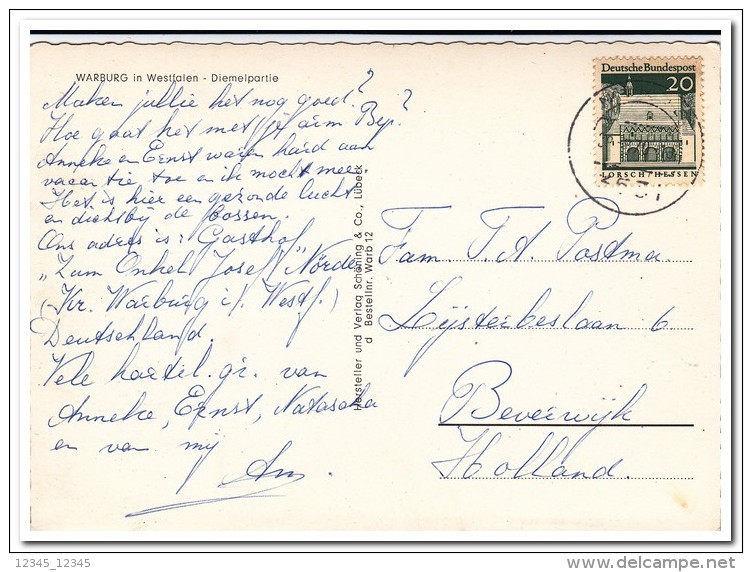 WARBURG in Westfalen - Diemelpartie
Maken jullie het nog goed?
Hoe gaat het met je arm Bep?
Anneke en Ernst waren hard aan
vacantie toe en ik mocht mee.
Het is hier een gezonde lucht
en dichtby de bossen.
Ons adres is: Gasthof
"Zum Onkel Josef" Nörde
(Kr. Warburg i/. Westf.)
Deutschland.
Vele hartel. gr. van
Anneke, Ernst, Natascha
en van my
Hersteller und Verlag Schöning & Co., Lübeck
d Bestellnr. Warb 12
Deutsche Bundespost
20
LORSCH/HESSEN
Fam. T. A. Postma.
Lijsterbeslaan 6
Beverwijk
Holland.
12345_12345
delcampe.net